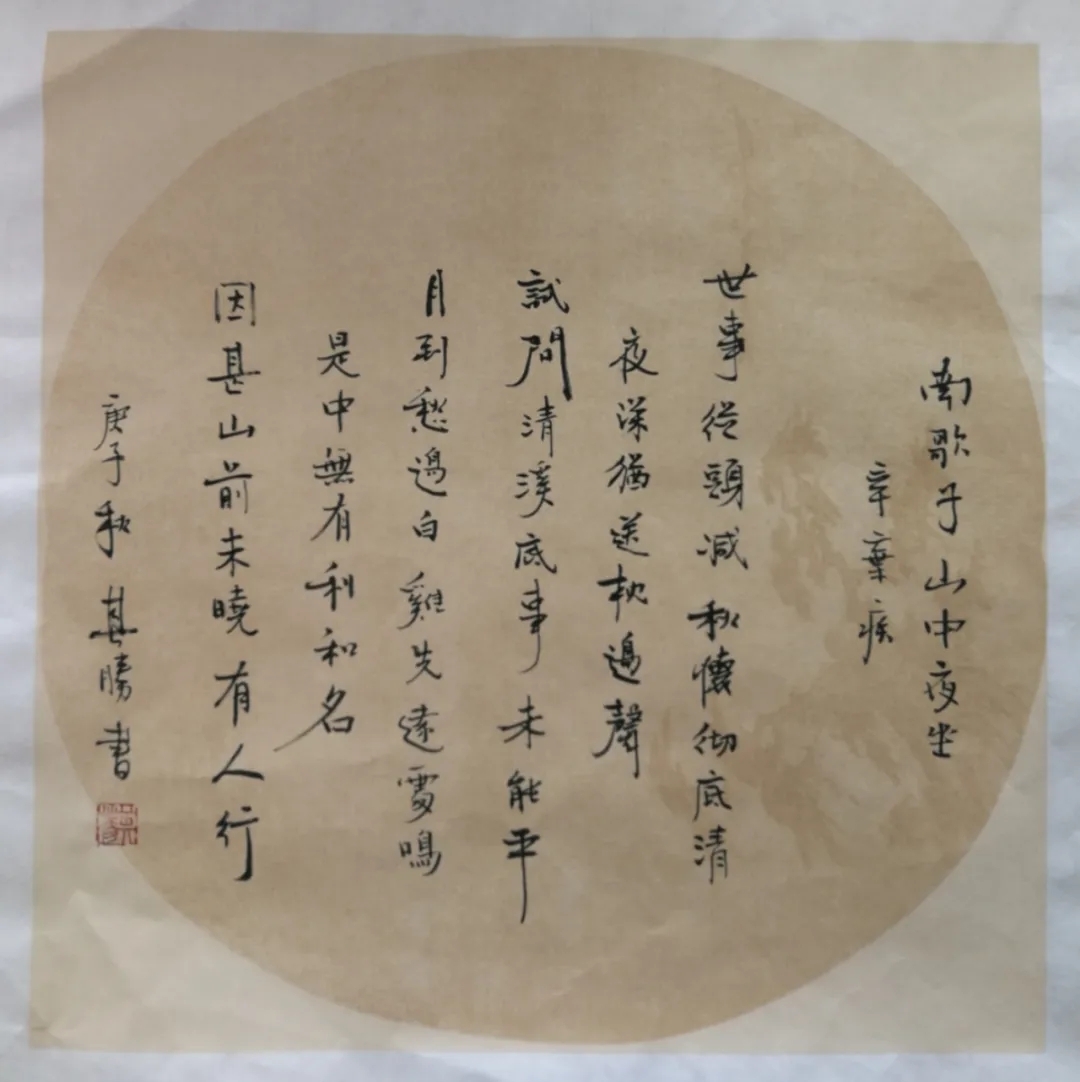 南歌子山中夜坐
辛棄疾
世事從頭减秋懷彻底清
夜深猶送枕邊聲
試問清溪底事未能平
月到愁邊白雞先遠處鳴
是中無有利和名
因甚山前未曉有人行
庚子秋其勝書